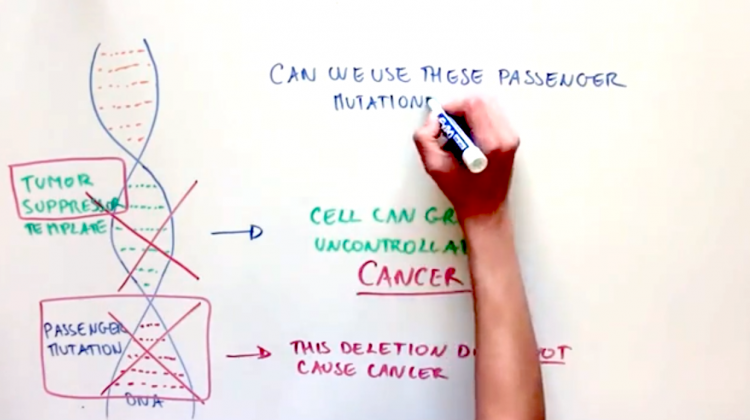 CAN WE USE THESE PASSENGER
MUTATION
TUMOR
SUPPRESSOR
TEMPLATE
CELL CAN
UNCONTROLLA
CANCER
PASSENGER
MUTATION
THIS DELETION
CAUSE CANCER
DNA
EXPO